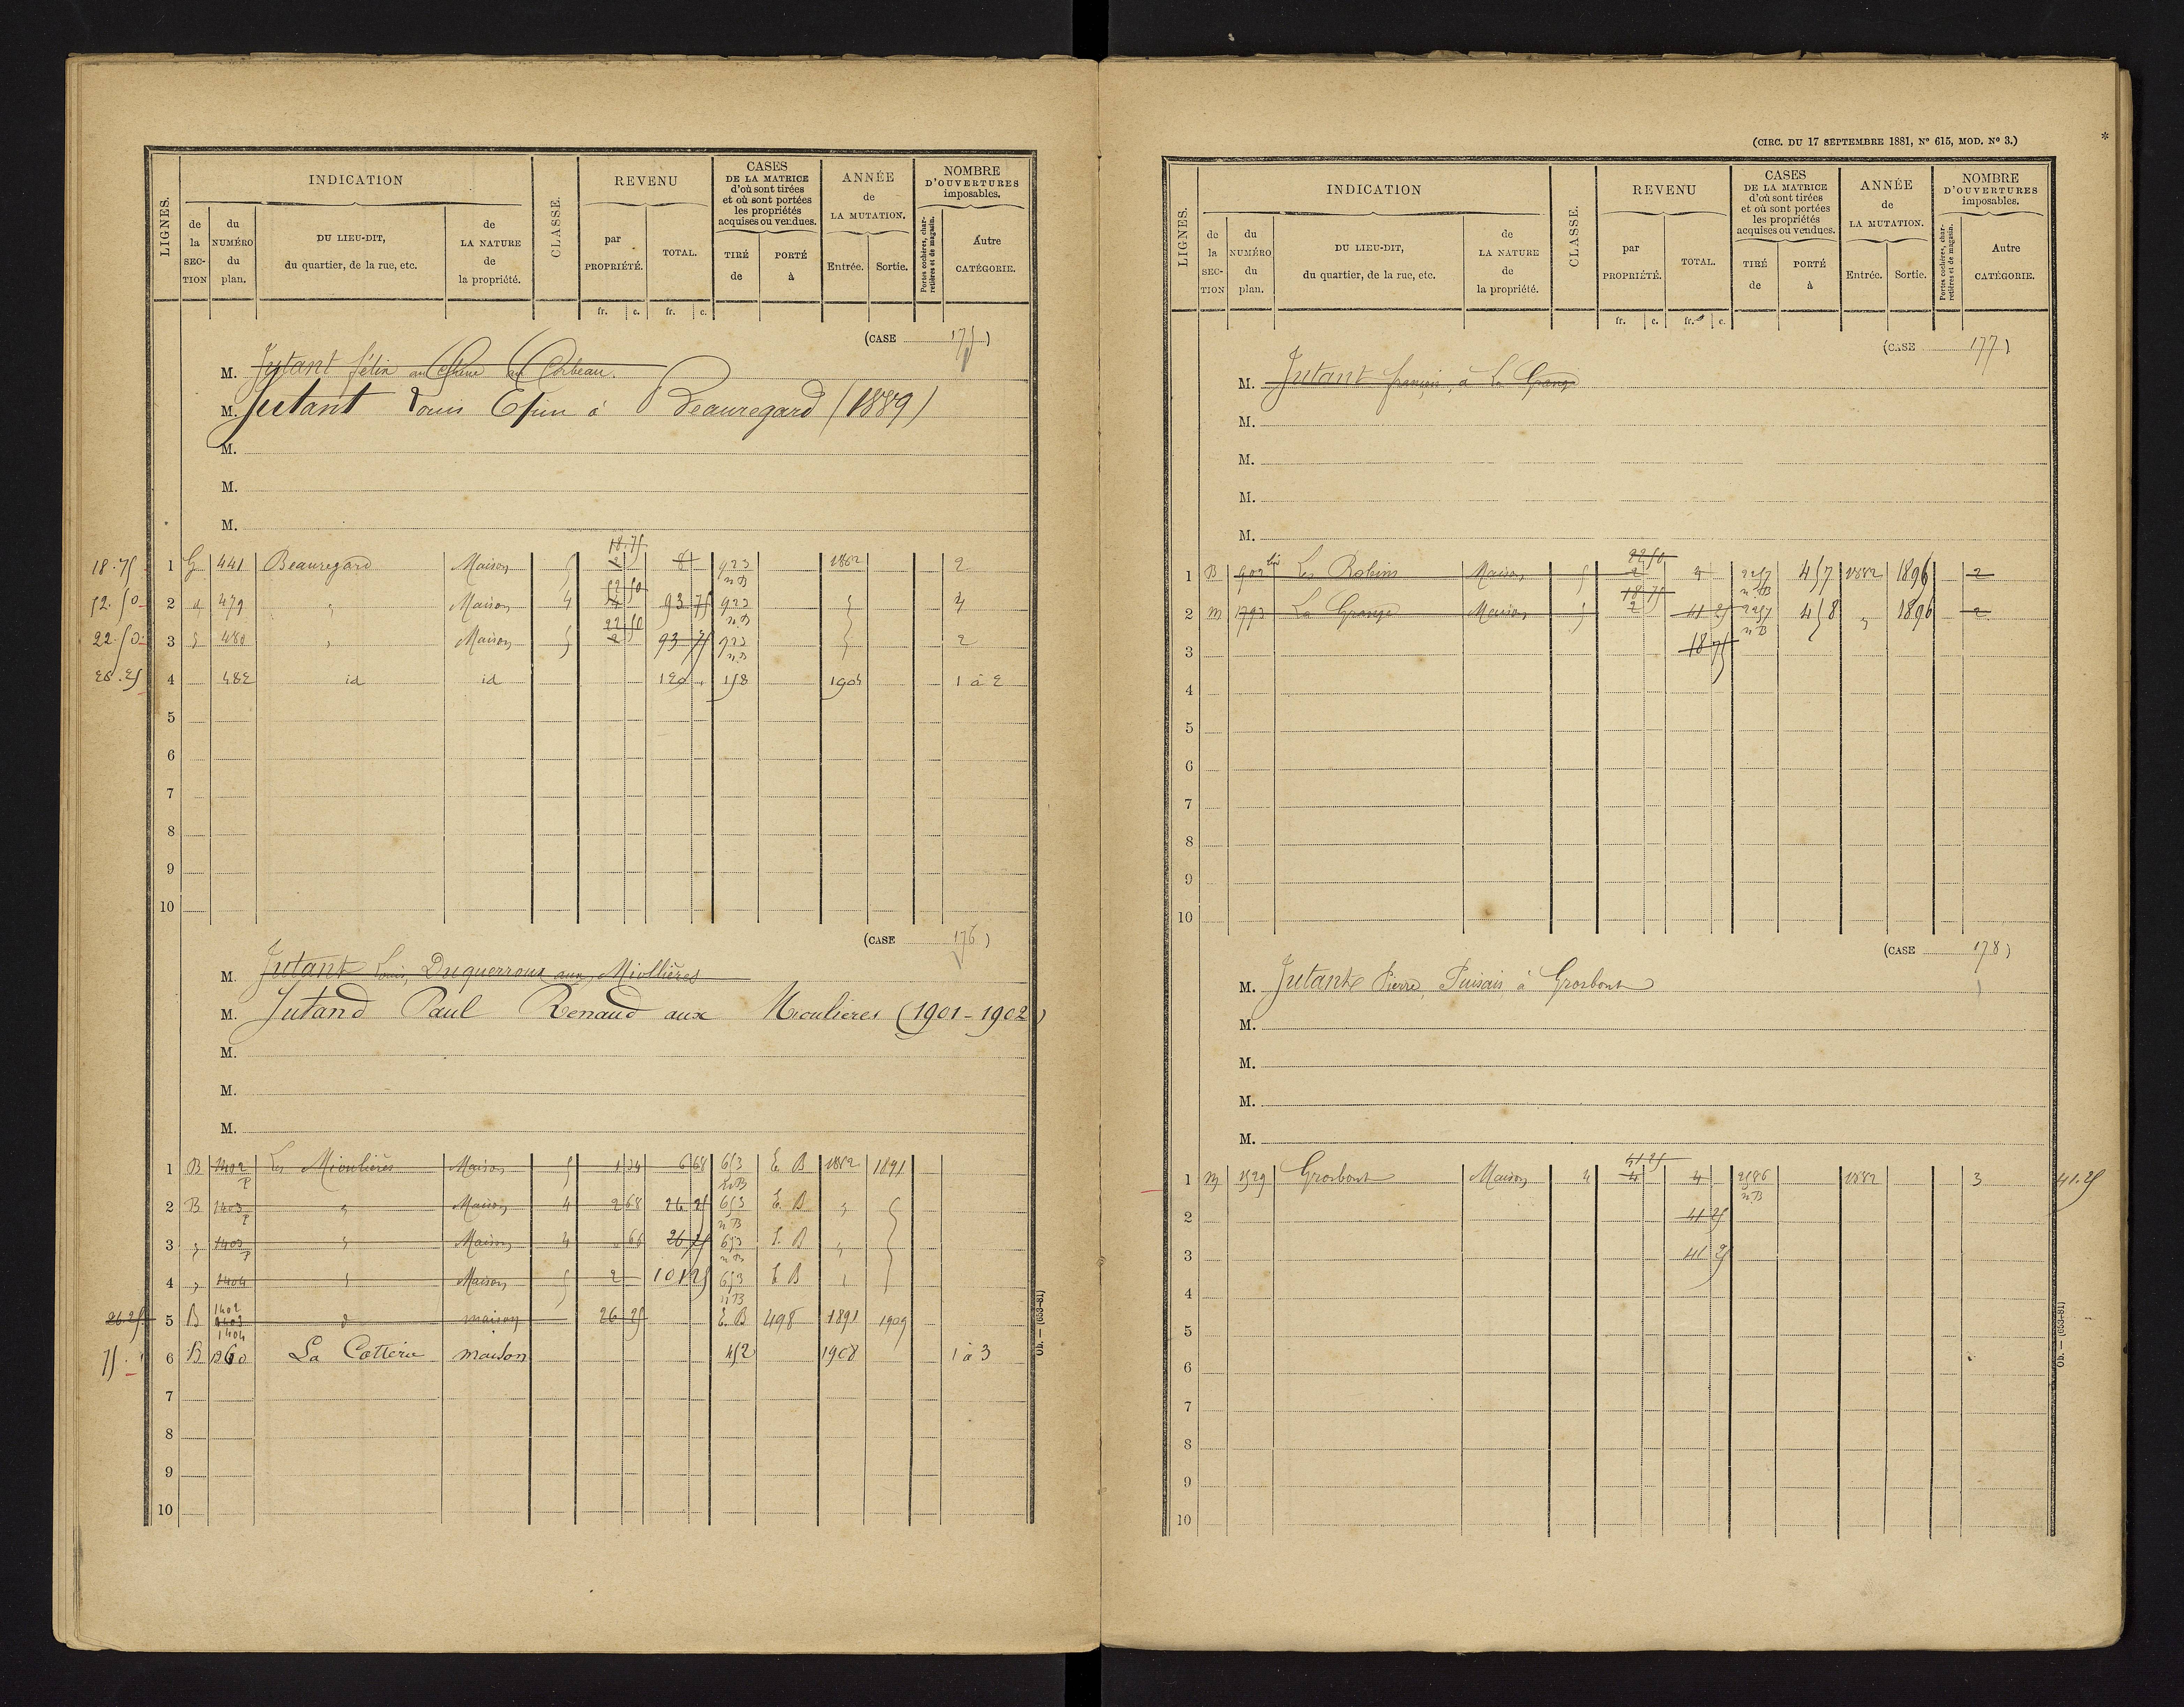 LIGNES.
INDICATION
de la SECTION
du NUMÉRO du plan.
DU LIEU-DIT, du quartier, de la rue, etc.
de LA NATURE de la propriété.
CLASSE.
REVENU
par PROPRIÉTÉ.
TOTAL.
fr. c. fr. c.
CASES DE LA MATRICE d'où sont tirées et où sont portées les propriétés acquises ou vendues.
TIRÉ de
PORTÉ à
ANNÉE de LA MUTATION.
Entrée.
Sortie.
NOMBRE D'OUVERTURES imposables.
Portes cochères, charretières et de magasin.
Autre CATÉGORIE.
(CASE 175)
M. Jutant félix au Chêne au Corbeau.
M. Jutant Louis à Beauregard (1889)
M.
M.
M.
18.75
18.75 1 G 441 Beauregard Maison 5 2 8 923 1882 2
n B
52 50
52.50 2 " 479 " Maison 4 4 93 75 923 " 4
n B
22 50
22.50 3 " 480 " Maison 5 2 93 75 923 " 2
n B
26.25 4 482 id id 120 158 1904 1 à 2
5
6
7
8
9
10
(CASE 176)
M. Jutant Louis, Duquerroux aux Miollières
M. Jutand Paul Renaud aux Mioulieres (1901-1902)
M.
M.
M.
1 B 1402 p Les Mioulières Maison 5 1 34 6 68 653 E. B 1882 1891
n B
2 B 1403 p " Maison 4 2 68 26 25 653 E. B " "
n B
3 " 1403 p " Maison 4 " 66 26 25 653 E. B " "
n B
4 " 1404 " Maison 5 2 101 25 653 E B " "
n B
26.25 5 B 1402 1403 1404 d maison 26 25 E. B 498 1891 1909
75. 6 B 1360 La Cotterie maison 452 1908 1 à 3
7
8
9
10
Ob. — (653-81)
(CIRC. DU 17 SEPTEMBRE 1881, N° 615, MOD. N° 3.)
*
LIGNES.
INDICATION
de la SECTION
du NUMÉRO du plan.
DU LIEU-DIT, du quartier, de la rue, etc.
de LA NATURE de la propriété.
CLASSE.
REVENU
par PROPRIÉTÉ.
TOTAL.
fr. c. fr. c.
CASES DE LA MATRICE d'où sont tirées et où sont portées les propriétés acquises ou vendues.
TIRÉ de
PORTÉ à
ANNÉE de LA MUTATION.
Entrée.
Sortie.
NOMBRE D'OUVERTURES imposables.
Portes cochères, charretières et de magasin.
Autre CATÉGORIE.
(CASE 177)
M. Jutant françois, à La Grange
M.
M.
M.
M.
22 50
1 B 902 bis Les Robins Maison 5 2 4 2257 457 1882 1896 2
n B
18 75
2 M 1793 La Grange Maison 5 2 41 25 2257 458 " 1896 2
n B
3 18 75
4
5
6
7
8
9
10
(CASE 178)
M. Jutant Pierre, Puisais à Grosbout
M.
M.
M.
M.
41 25
1 M 1529 Grosbout Maison 4 4 4 2586 1882 3 41.25
n B
2 41 25
3 41 25
4
5
6
7
8
9
10
Ob. — (653-81)